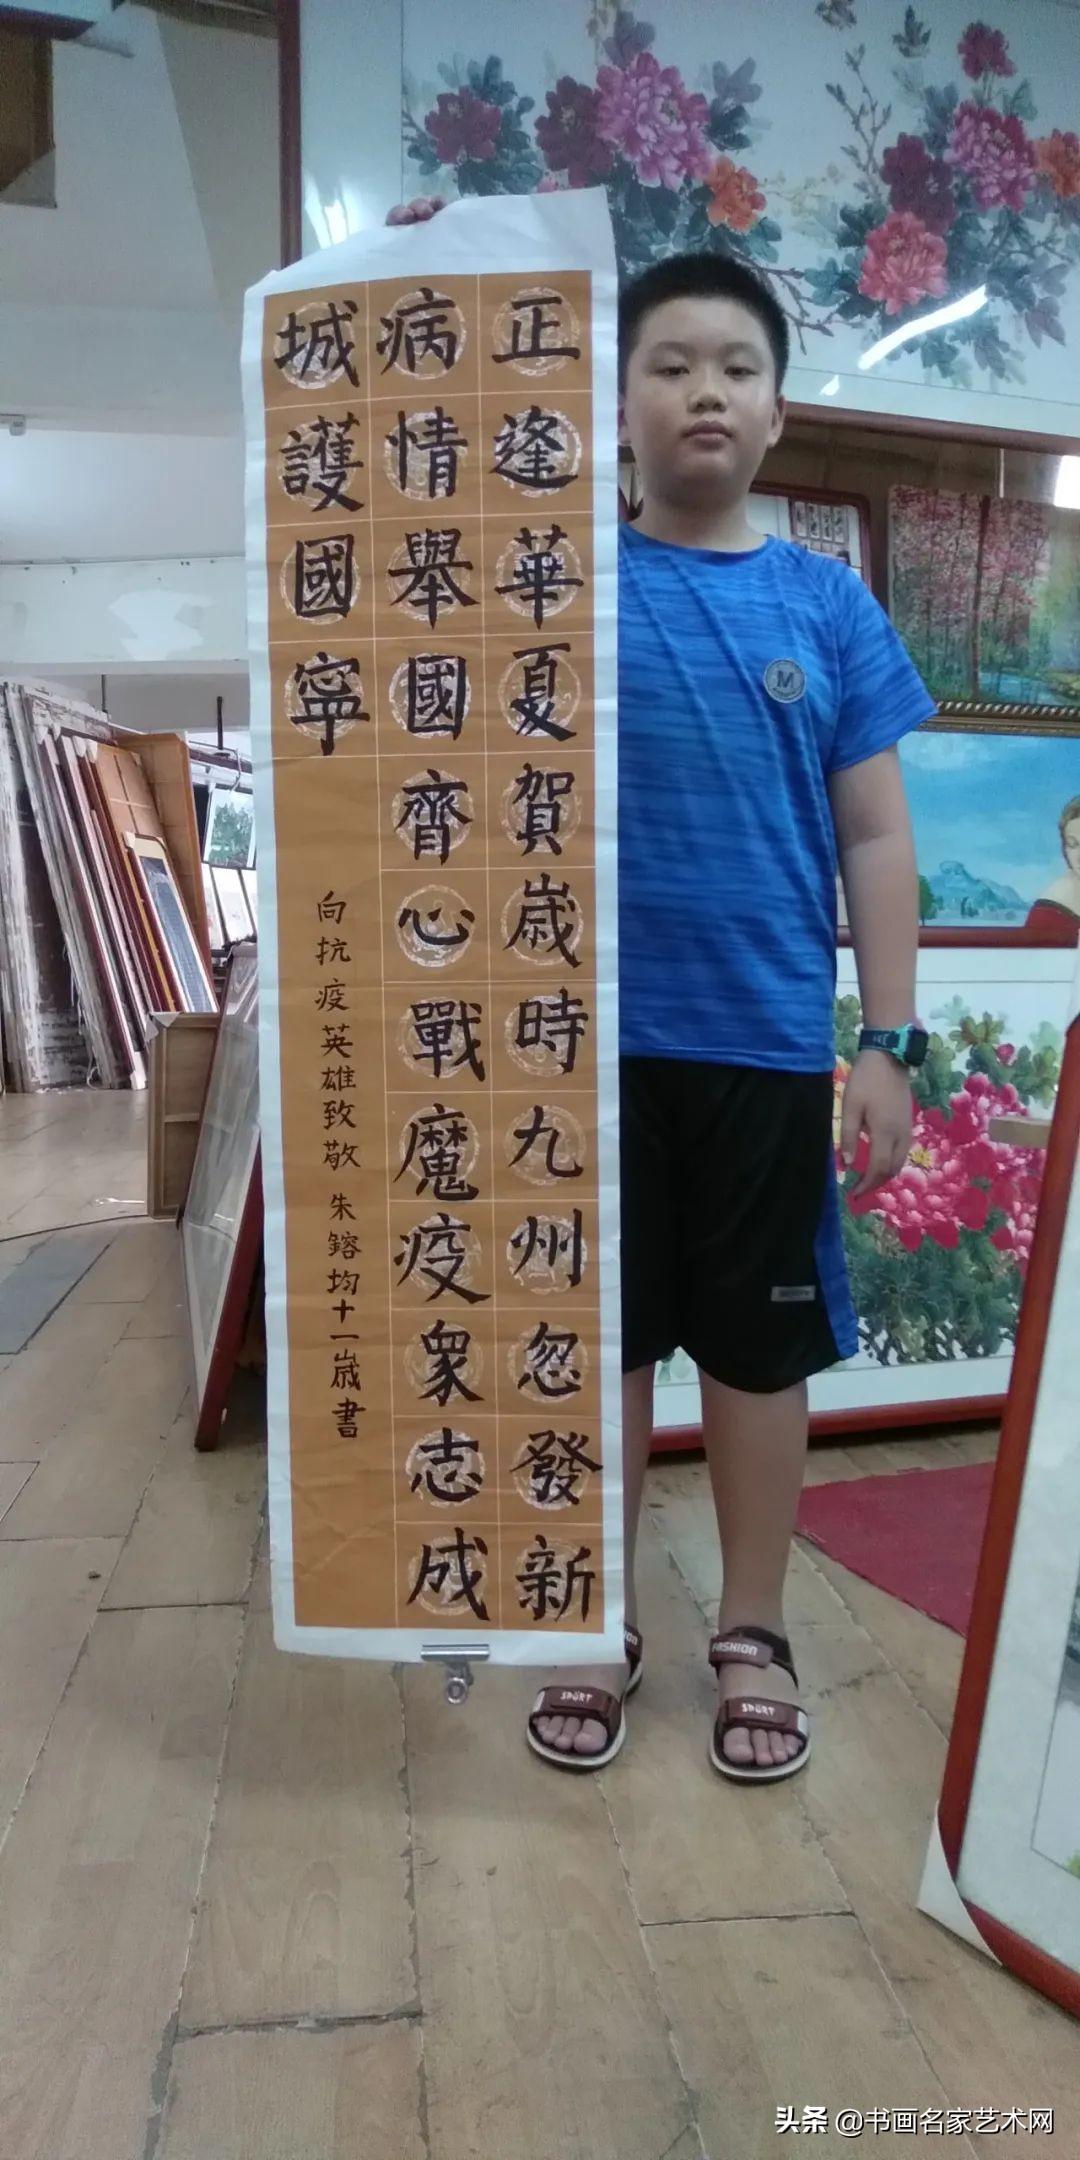 正逢華夏賀歲時九州忽發新
病情舉國齊心戰魔疫眾志成
城護國寧
向抗疫英雄致敬 朱鎔均十一歲書
M
FASHION
SPORT
SPORT
头条 @书画名家艺术网